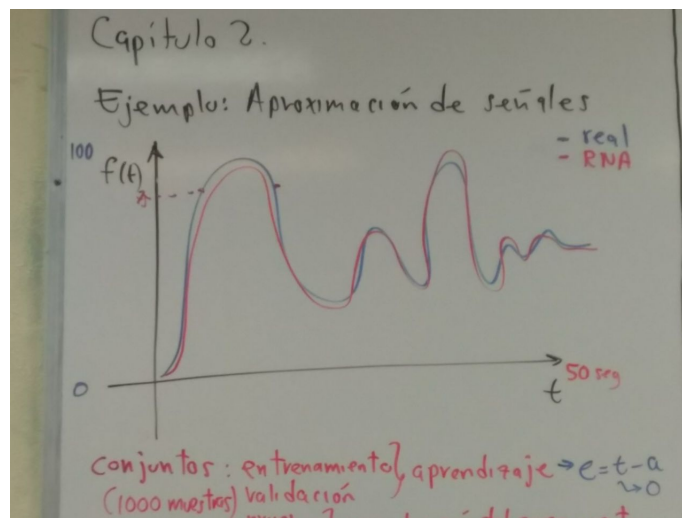 Capítulo 2.
Ejemplo: Aproximación de señales
- real
- RNA
100
f(t)
0
50 seg
t
conjuntos: entrenamiento } aprendizaje → e = t - a
↳ 0
(1000 muestras) validación